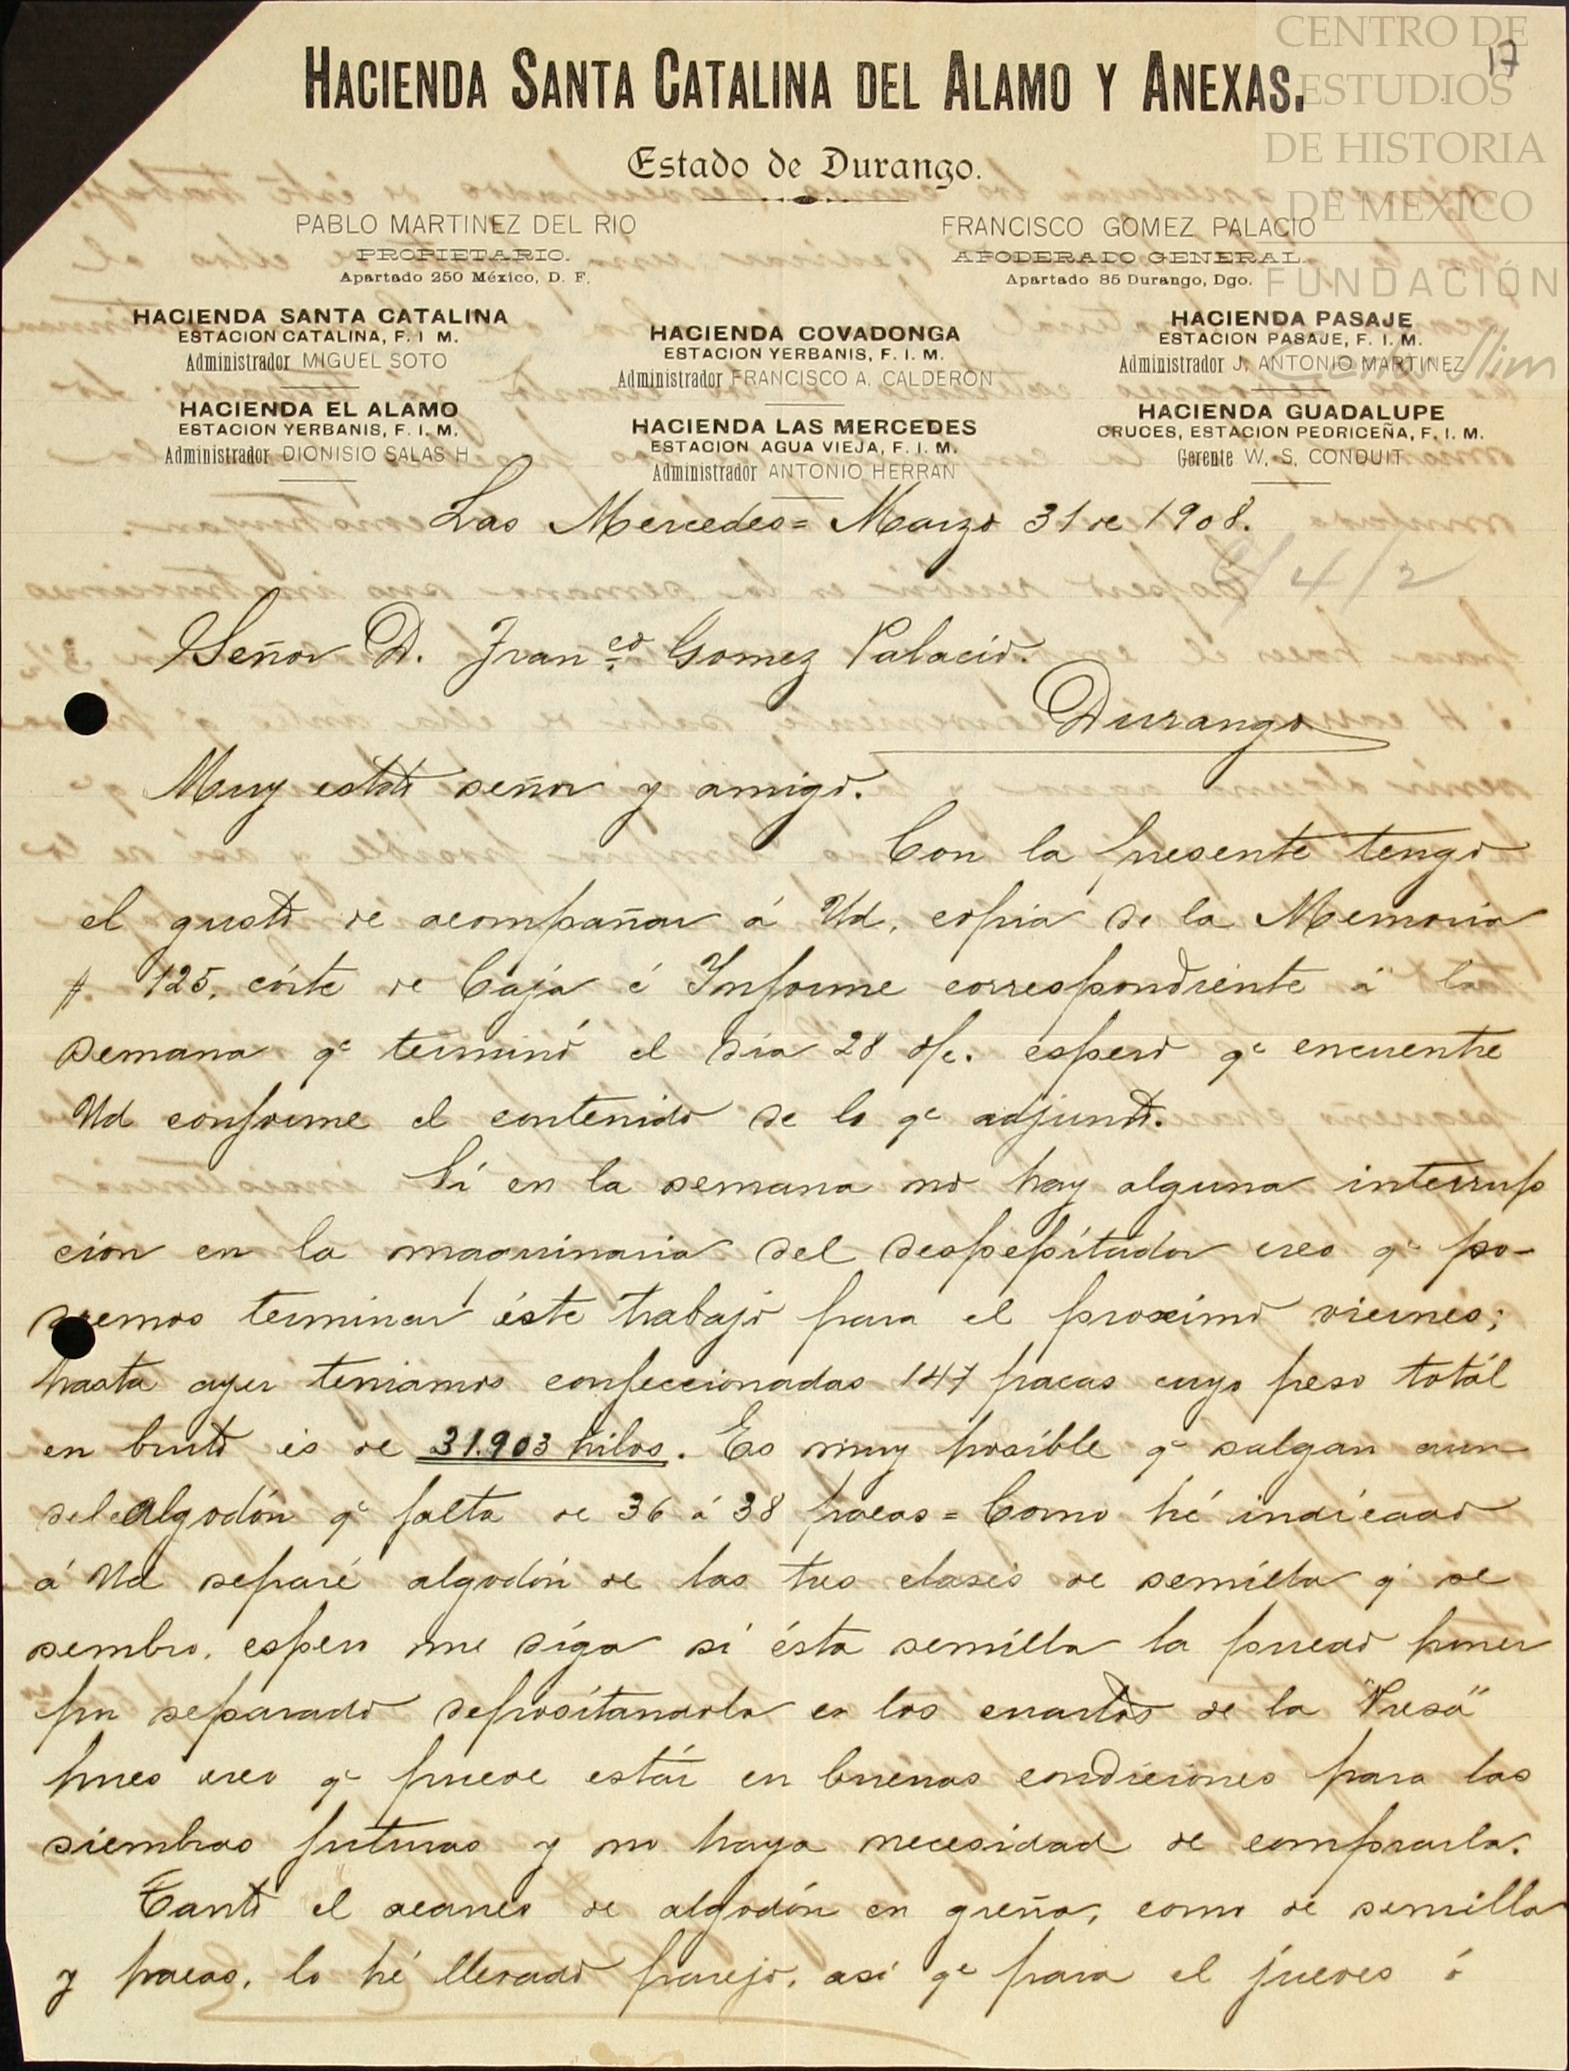 CENTRO DE
ESTUDIOS
DE HISTORIA
DE MEXICO
FUNDACIÓN
Carlos Slim
17
HACIENDA SANTA CATALINA DEL ALAMO Y ANEXAS.
Estado de Durango.
PABLO MARTINEZ DEL RIO
PROPIETARIO.
Apartado 250 México, D. F.
FRANCISCO GOMEZ PALACIO
APODERADO GENERAL.
Apartado 85 Durango, Dgo.
HACIENDA SANTA CATALINA
ESTACION CATALINA, F. I M.
Administrador MIGUEL SOTO
HACIENDA EL ALAMO
ESTACION YERBANIS, F. I. M.
Administrador DIONISIO SALAS H
HACIENDA COVADONGA
ESTACION YERBANIS, F. I. M.
Administrador FRANCISCO A. CALDERON
HACIENDA LAS MERCEDES
ESTACION AGUA VIEJA, F. I. M.
Administrador ANTONIO HERRAN
HACIENDA PASAJE
ESTACION PASAJE, F. I. M.
Administrador J. ANTONIO MARTINEZ
HACIENDA GUADALUPE
CRUCES, ESTACION PEDRICEÑA, F. I. M.
Gerente W. S. CONDUIT
Las Mercedes = Marzo 31 de 1908.
4/2
Señor D. Franco Gomez Palacio.
Durango
Muy estdo señor y amigo.
Con la presente tengo
el gusto de acompañar á Ud, copia de la Memoria
# 125, córte de Caja é Informe correspondiente á la
semana qe terminó el día 28 d/c. espero qe encuentre
Ud conforme el contenido de lo qe adjunto.
Si en la semana no hay alguna interrup
cion en la maquinaria del despepitador creo qe po-
dremos terminar éste trabajo para el proximo viernes;
hasta ayer teniamos confeccionadas 147 pacas cuyo peso totál
en bruto es de 31.903 kilos. Es muy posíble qe salgan aun
del algodón qe falta de 36 á 38 pacas = Como hé indícado
á Ud separé algodón de las tres clases de semilla qe se
sembro, espero me díga si ésta semílla la puedo poner
por separado deposítandola en los cuartos de la "Presa"
pues creo qe puede estár en buenas condiciones para las
siembras futuras y no haya necesidad de comprarla.
Tanto el acarreo de algodón en greña, como de semilla
y pacas, lo hé llevado parejo, asi qe para el jueves ó